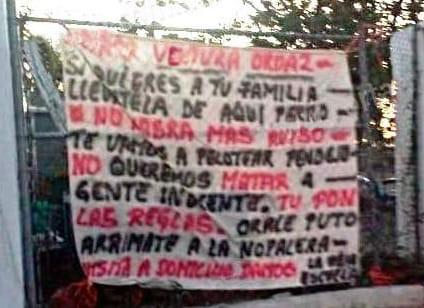 VENTURA ORDAZ
SI QUIERES A TU FAMILIA
LLEVATELA DE AQUI PERRO
NO HBRA MAS AVISO
TE VAMOS A PELOTEAR PENDEJO
NO QUEREMOS MATAR A
GENTE INOCENTE. TU PON
LAS REGLAS. ORALE PUTO
ARRIMATE A LA NOPALERA
A DOMICILIO LA VIEJA
ESCUELA